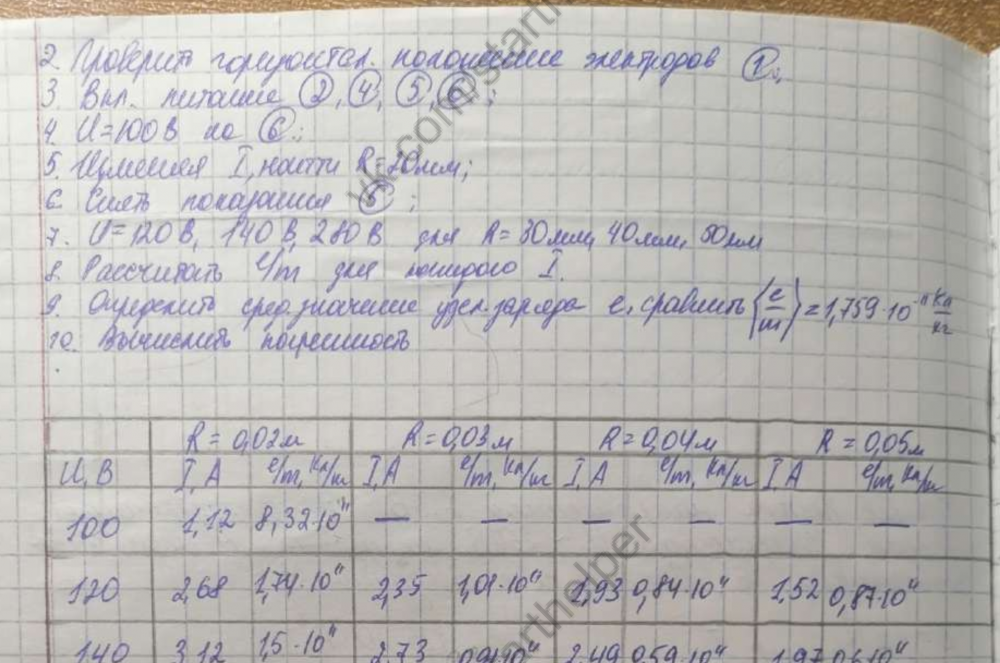 2. Проверить горизонтал. положение электродов ①;
3. Вкл. питание ②, ④, ⑤, ⑥;
4. U=100В на ⑥;
5. Изменяя I, найти R=20мм;
6. Снять показания ⑤;
7. U=120В, 140В, 280В для R=30мм, 40мм, 50мм
8. Рассчитать e/m для каждого I.
9. Определить сред. значение удел. заряда e, сравнить (e/m)=1,759·10⁻¹¹ Кл/кг
10. Вычислить погрешность
R = 0,02м R = 0,03м R = 0,04м R = 0,05м
U, В I, А e/m, Кл/кг I, А e/m, Кл/кг I, А e/m, Кл/кг I, А e/m, Кл/кг
100 1,12 8,32·10¹¹ — — — — — —
120 2,68 1,74·10¹¹ 2,35 1,01·10¹¹ 1,93 0,84·10¹¹ 1,52 0,87·10¹¹
140 3,12 1,5·10¹¹ 2,73 0,91·10¹¹ 2,49 0,59·10¹¹ 1,97 0,6·10¹¹